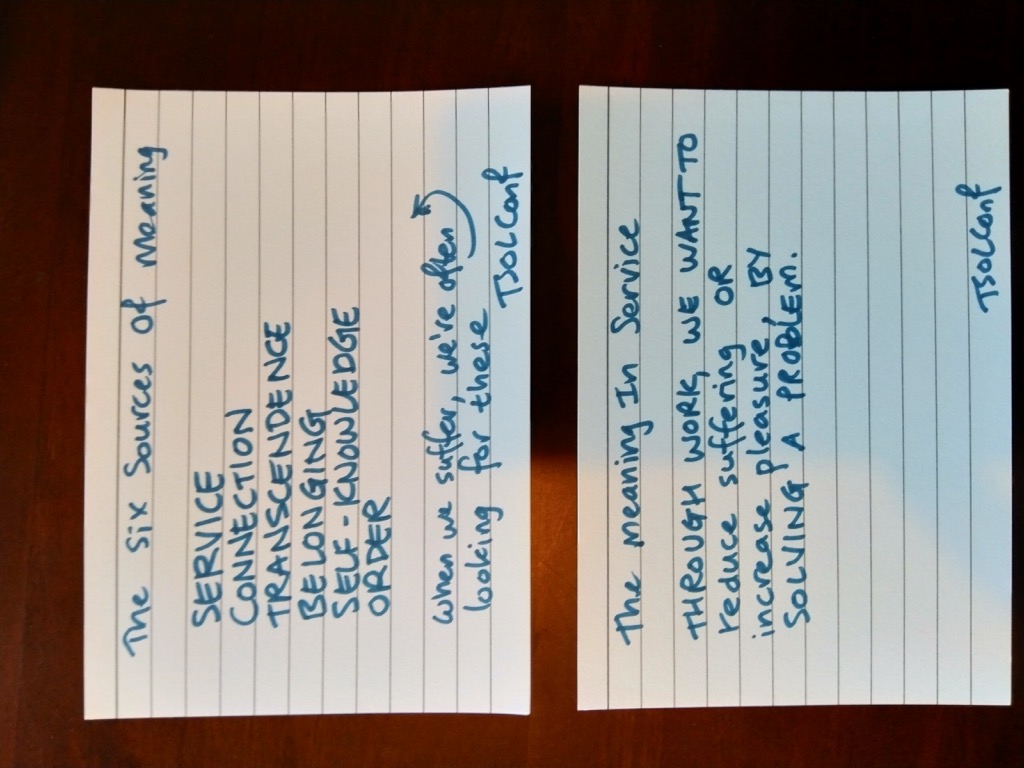 The Six Sources Of Meaning
SERVICE
CONNECTION
TRANSCENDENCE
BELONGING
SELF-KNOWLEDGE
ORDER
When we suffer, we're often
looking for these
TSOLConf
The Meaning In Service
THROUGH WORK, WE WANT TO
reduce suffering OR
increase pleasure, BY
SOLVING A PROBLEM.
TSOLConf